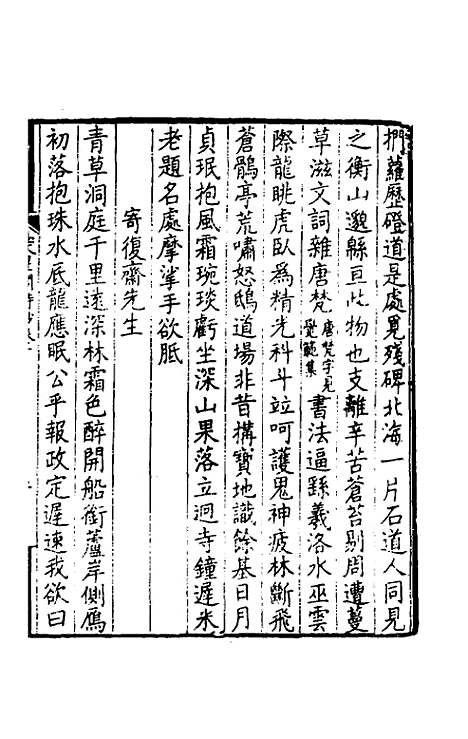 捫蘿歷磴道是處覓殘碑北海一片石道人同見
之衡山邈縣亘此物也支離辛苦蒼苔剔周遭蔓
草滋文詞雜唐梵唐梵字見覺範集書法逼繇羲洛水巫雲
際龍眺虎臥爲精光科斗竝呵護鬼神疲林斷飛
蒼鶻亭荒嘯怒鴟道場非昔搆寶地識餘基日月
貞珉抱風霜琬琰虧坐深山果落立迥寺鐘遲米
老題名處摩挲手欲胝
寄復齋先生
青草洞庭千里遠深林霜色醉開船銜蘆岸側鴈
初落抱珠水底龍應眠公乎報政定遲速我欲曰